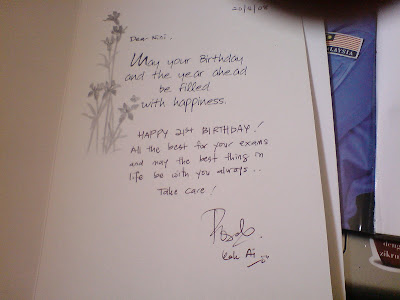 20/4/08
Dear Nini,
May your Birthday
and the year ahead
be filled
with happiness.
HAPPY 21st BIRTHDAY!
All the best for your exams
and may the best thing in
life be with you always..
Take care!
Kak Ai
MALAYSIA
deng
zikru